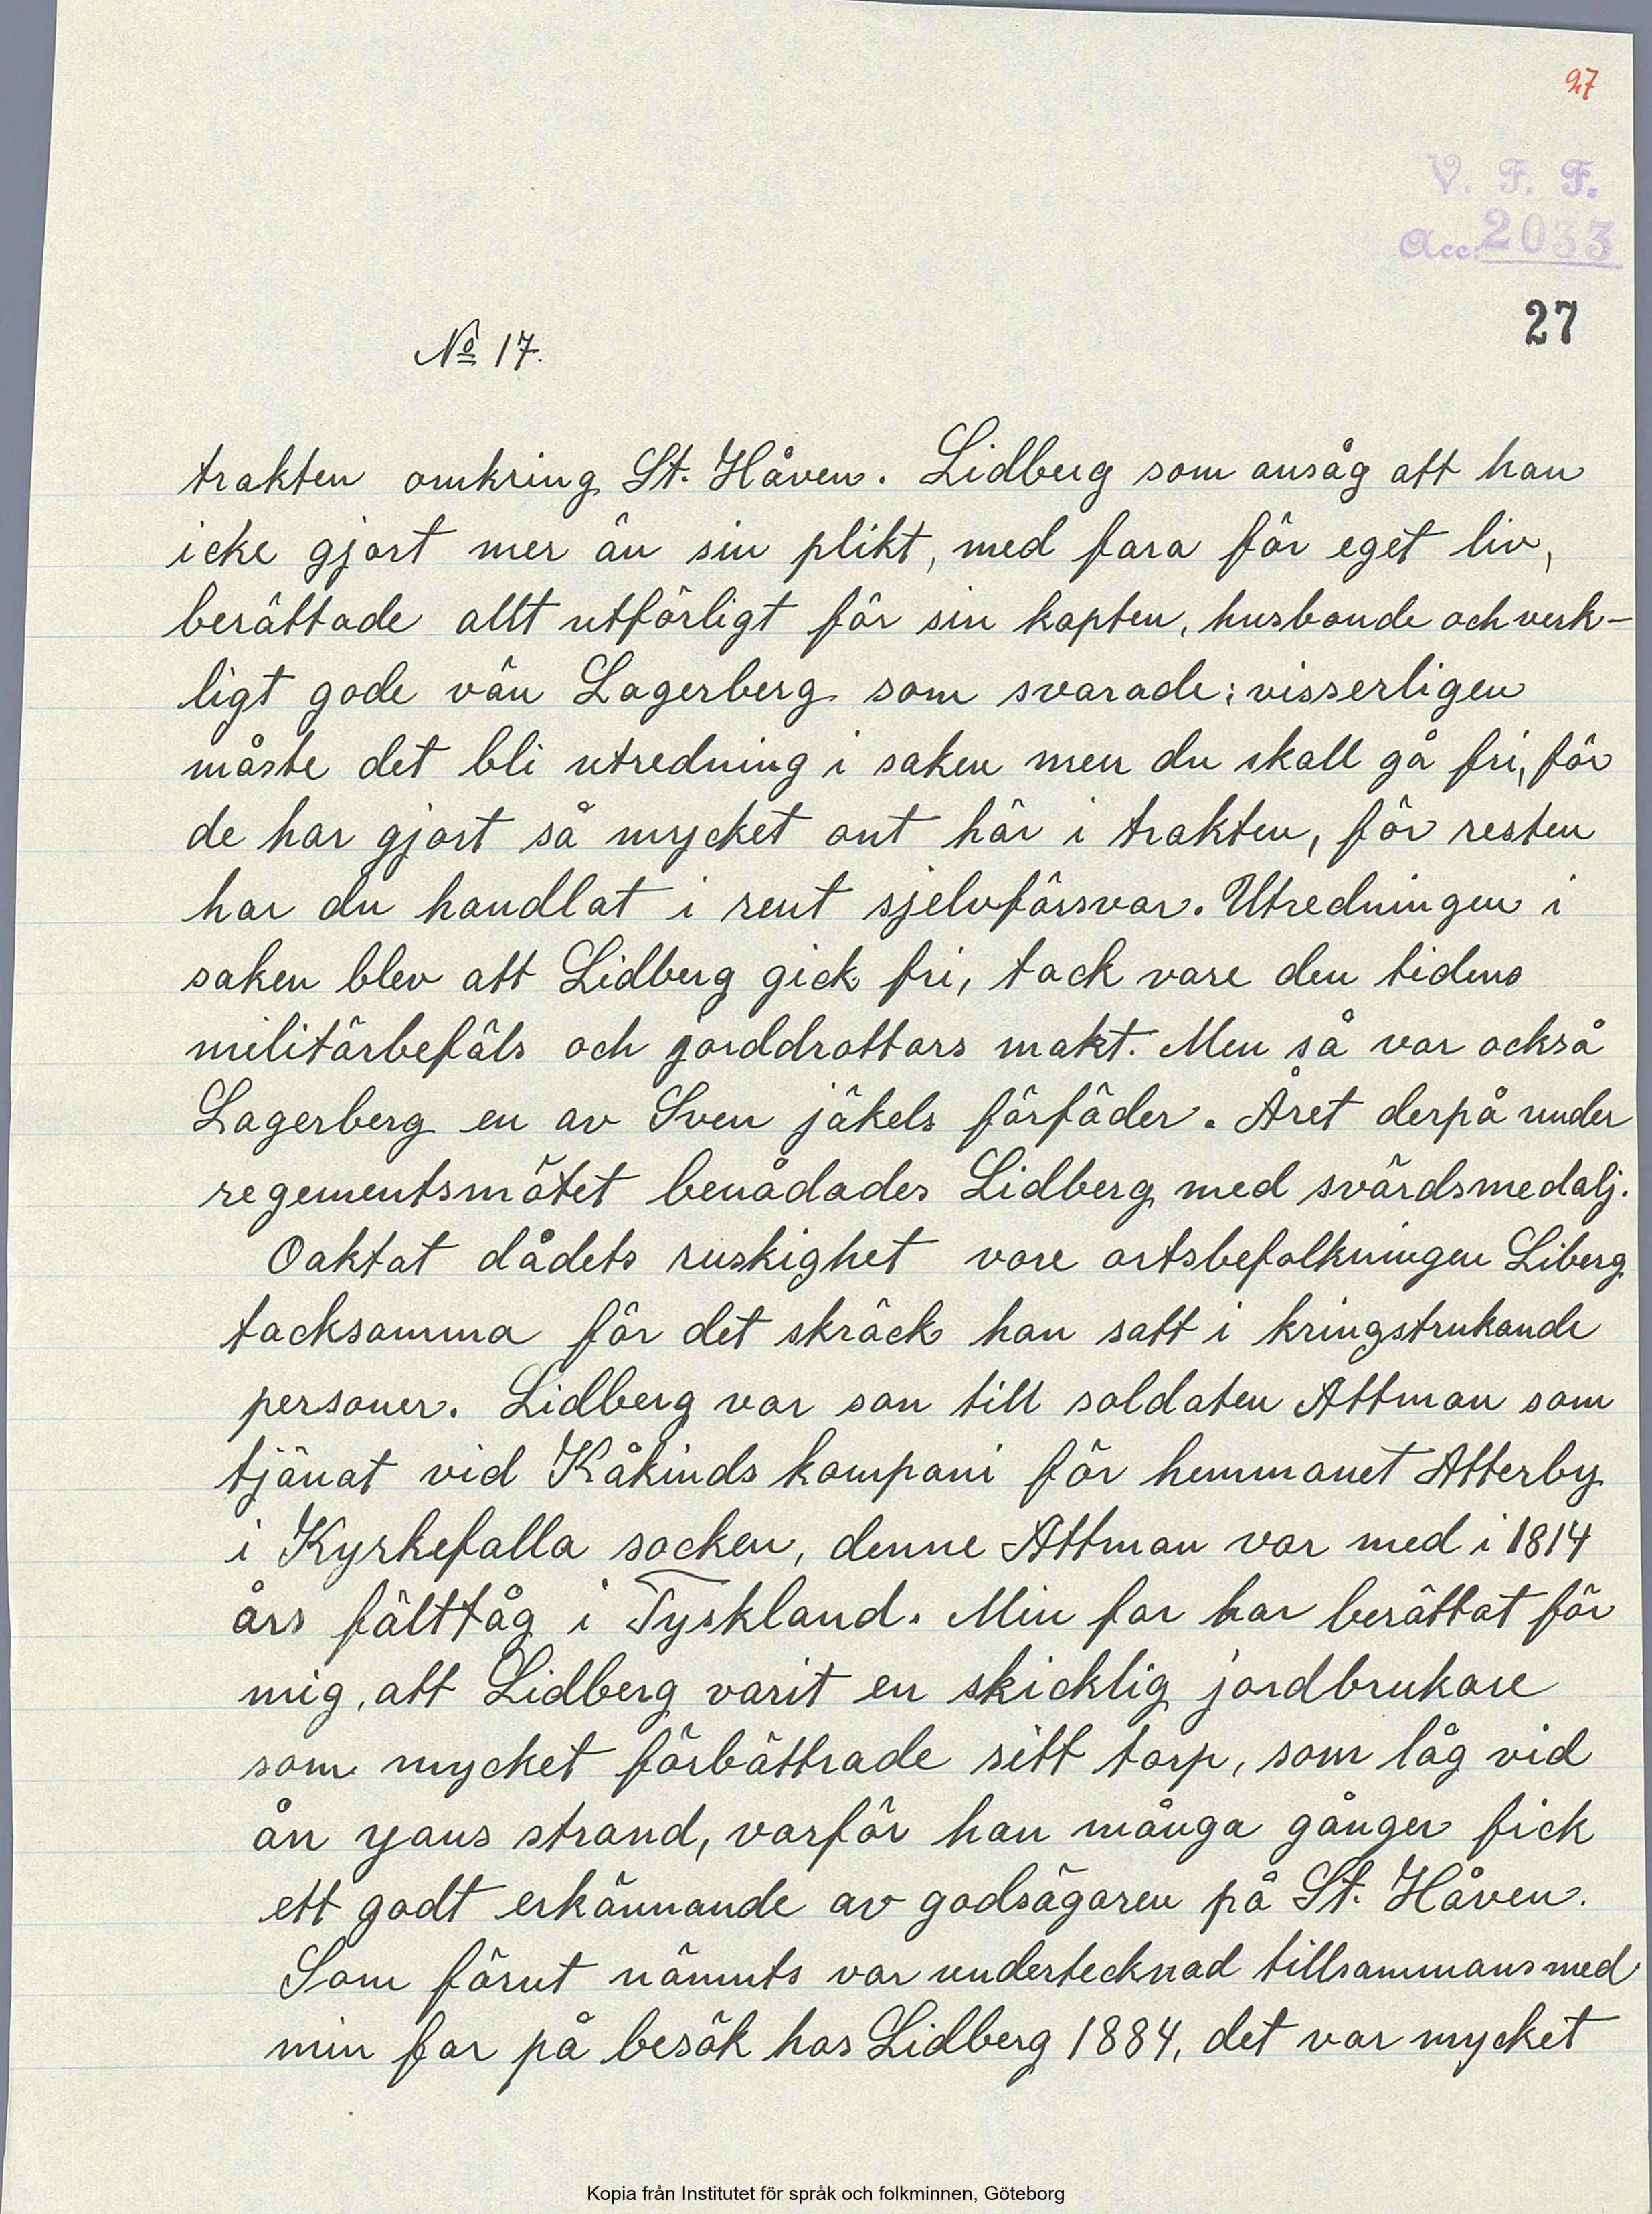 27
V. F. F.
Acc. 2033
27
No 17.
trakten omkring St. Håven. Lidberg som ansåg att han
icke gjort mer än sin plikt, med fara för eget liv,
berättade allt utförligt för sin kapten, husbonde och verk-
ligt gode vän Lagerberg som svarade: visserligen
måste det bli utredning i saken men du skall gå fri, för
de har gjort så mycket ont här i trakten, för resten
har du handlat i rent sjelvförsvar. Utredningen i
saken blev att Lidberg gick fri, tack vare den tidens
militärbefäls och jorddrottars makt. Men så var också
Lagerberg en av Sven jäkels förfäder. Året derpå under
regementsmötet benådades Lidberg med svärdsmedalj.
Oaktat dådets ruskighet vore ortsbefolkningen Liberg
tacksamma för det skräck han satt i kringstrukande
personer. Lidberg var son till soldaten Attman som
tjänat vid Kåkinds kompani för hemmanet Atterby
i Kyrkefalla socken, denne Attman var med i 1814
års fälttåg i Tyskland. Min far har berättat för
mig, att Lidberg varit en skicklig jordbrukare
som mycket förbättrade sitt torp, som låg vid
ån yans strand, varför han många gånger fick
ett godt erkännande av godsägaren på St. Håven.
Som förut nämnts var undertecknad tillsammans med
min far på besök hos Lidberg 1884, det var mycket
Kopia från Institutet för språk och folkminnen, Göteborg